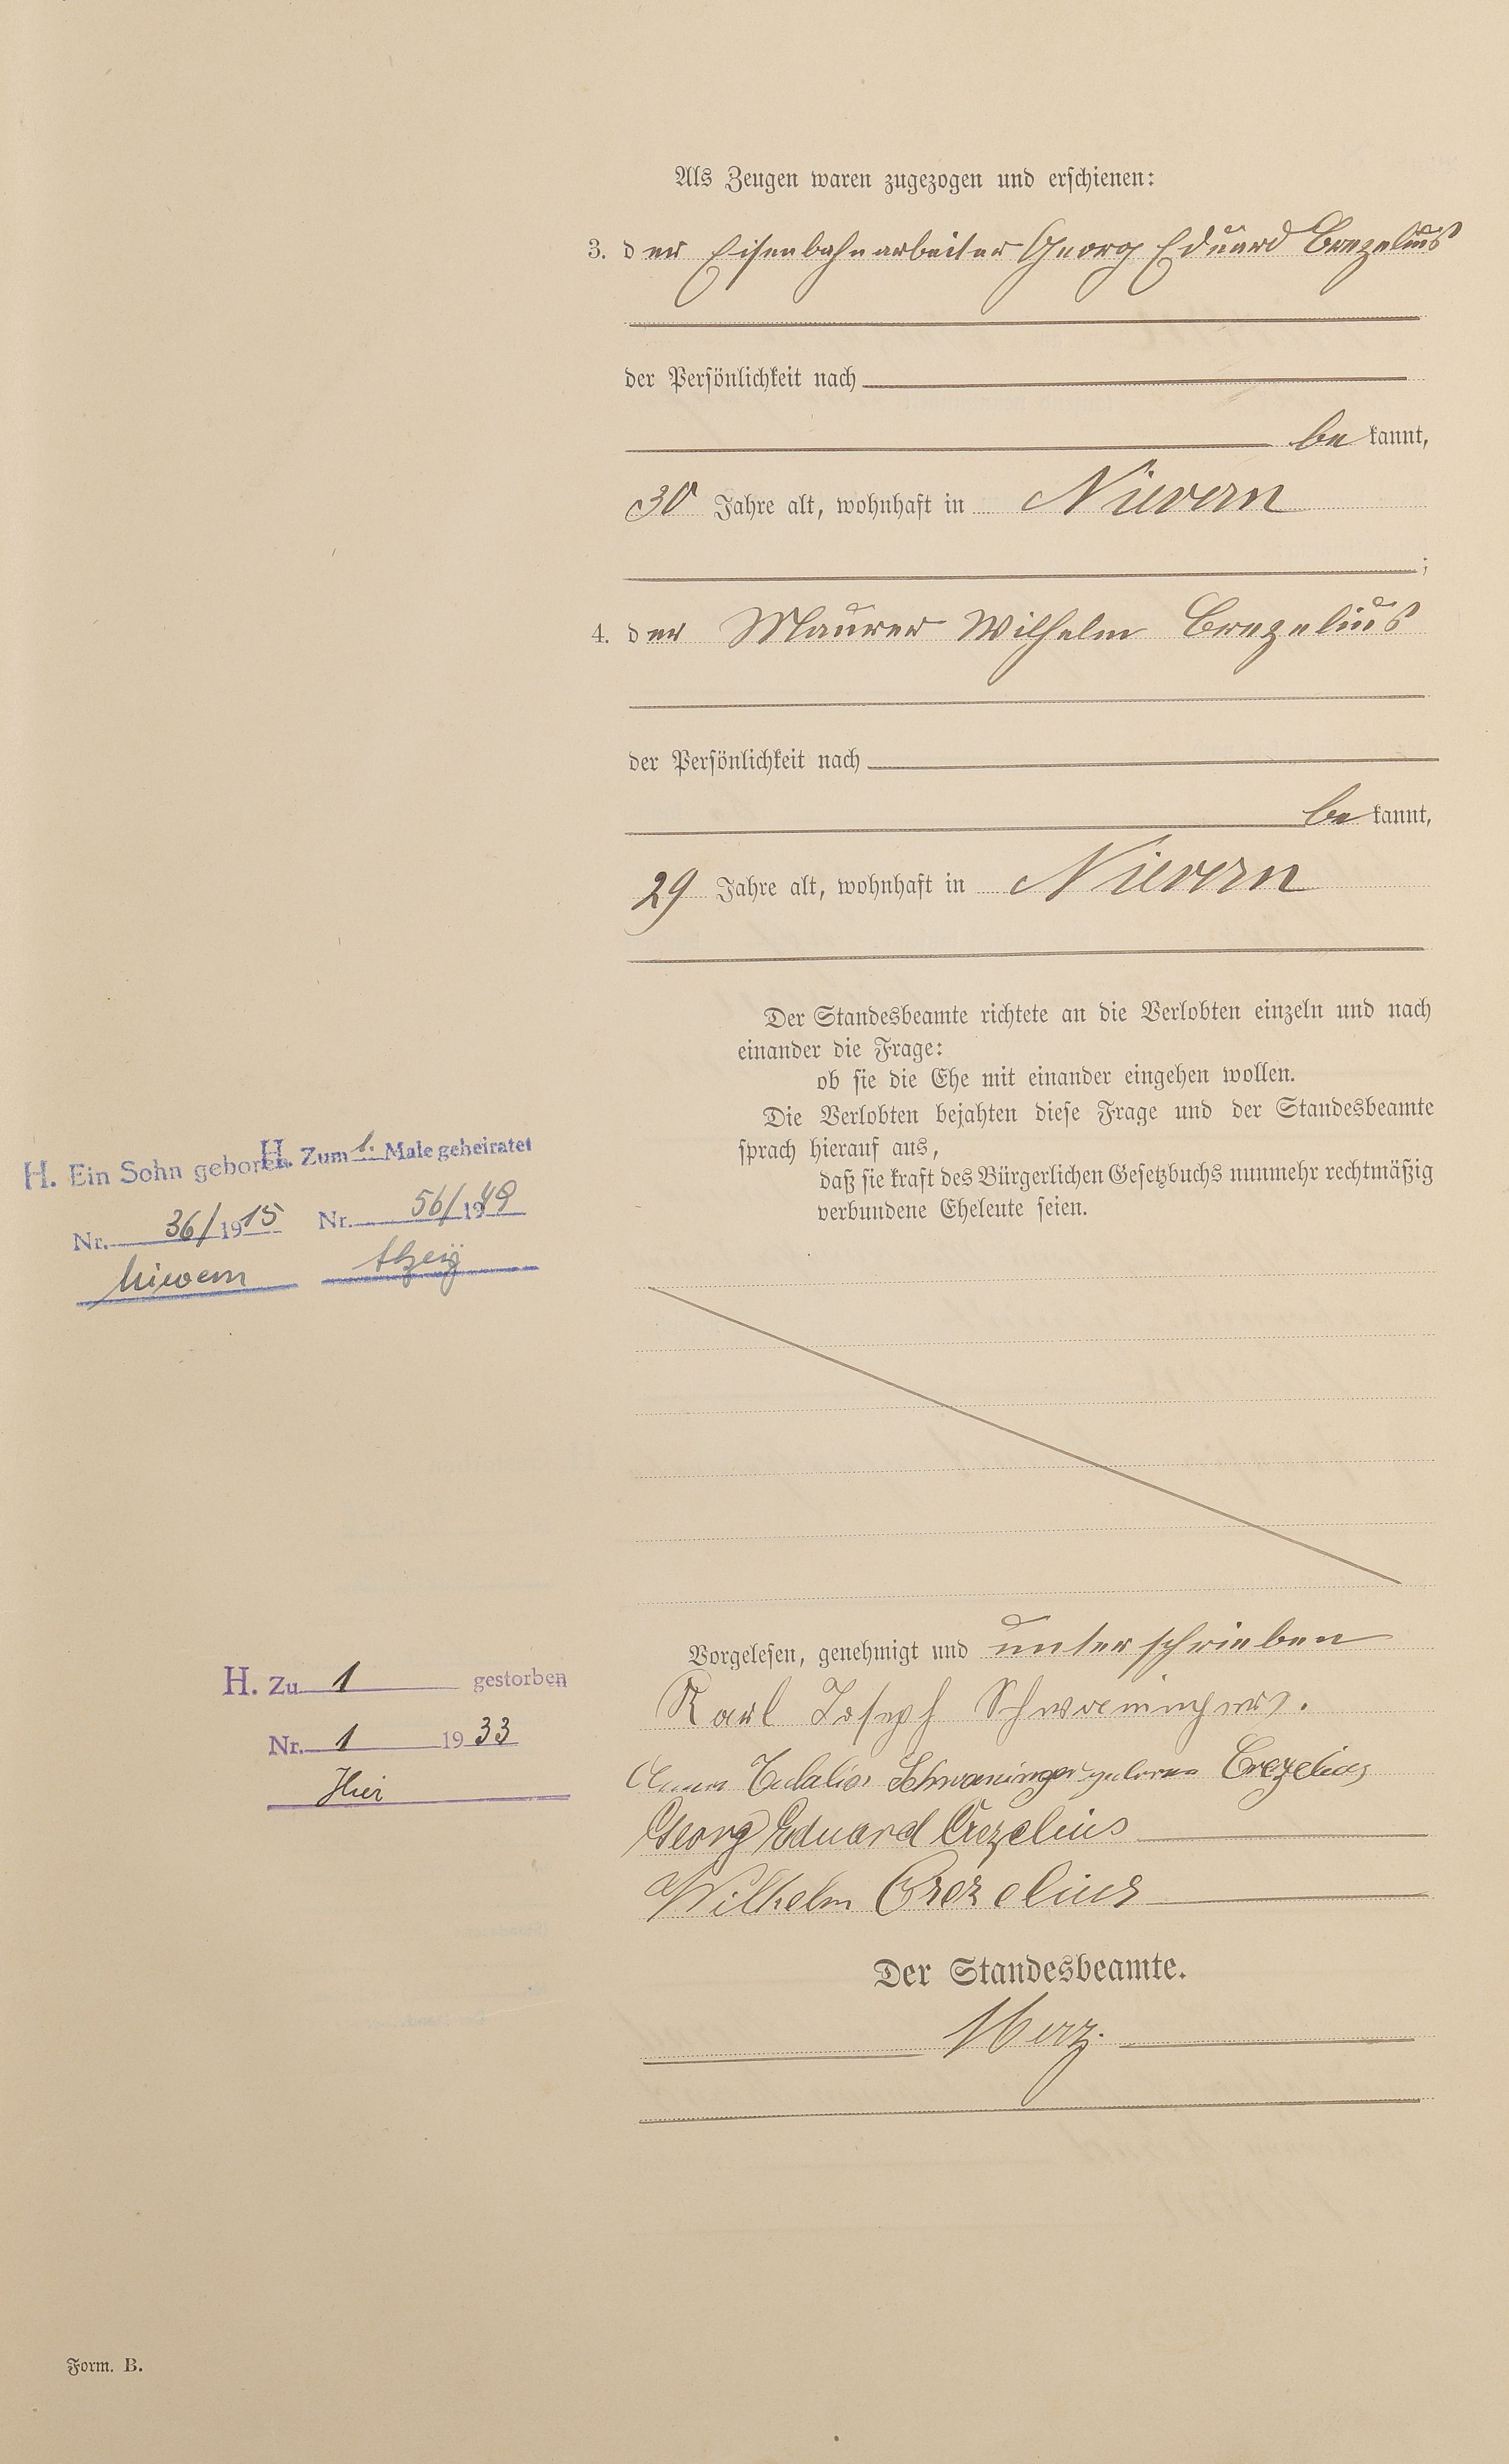 Als Zeugen waren zugezogen und erschienen:
3. der Eisenbahnarbeiter Georg Eduard Crezelius
der Persönlichkeit nach
bekannt,
30 Jahre alt, wohnhaft in Nievern
;
4. der Maurer Wilhelm Crezelius
der Persönlichkeit nach
bekannt,
29 Jahre alt, wohnhaft in Nievern
Der Standesbeamte richtete an die Verlobten einzeln und nach
einander die Frage:
ob sie die Ehe mit einander eingehen wollen.
Die Verlobten bejahten diese Frage und der Standesbeamte
sprach hierauf aus,
daß sie kraft des Bürgerlichen Gesetzbuchs nunmehr rechtmäßig
verbundene Eheleute seien.
H. Ein Sohn geboren
Nr. 36/1915
Nievern
H. Zum 1. Male geheiratet
Nr. 56/1949
Alzey
Vorgelesen, genehmigt und unterschrieben
Karl Joseph Schwaninger.
Anna Eulalia Schwaninger geborene Crezelius
Georg Eduard Crezelius
Wilhelm Crezelius
H. Zu 1 gestorben
Nr. 1 1933
Hier
Der Standesbeamte.
Merz.
Form. B.